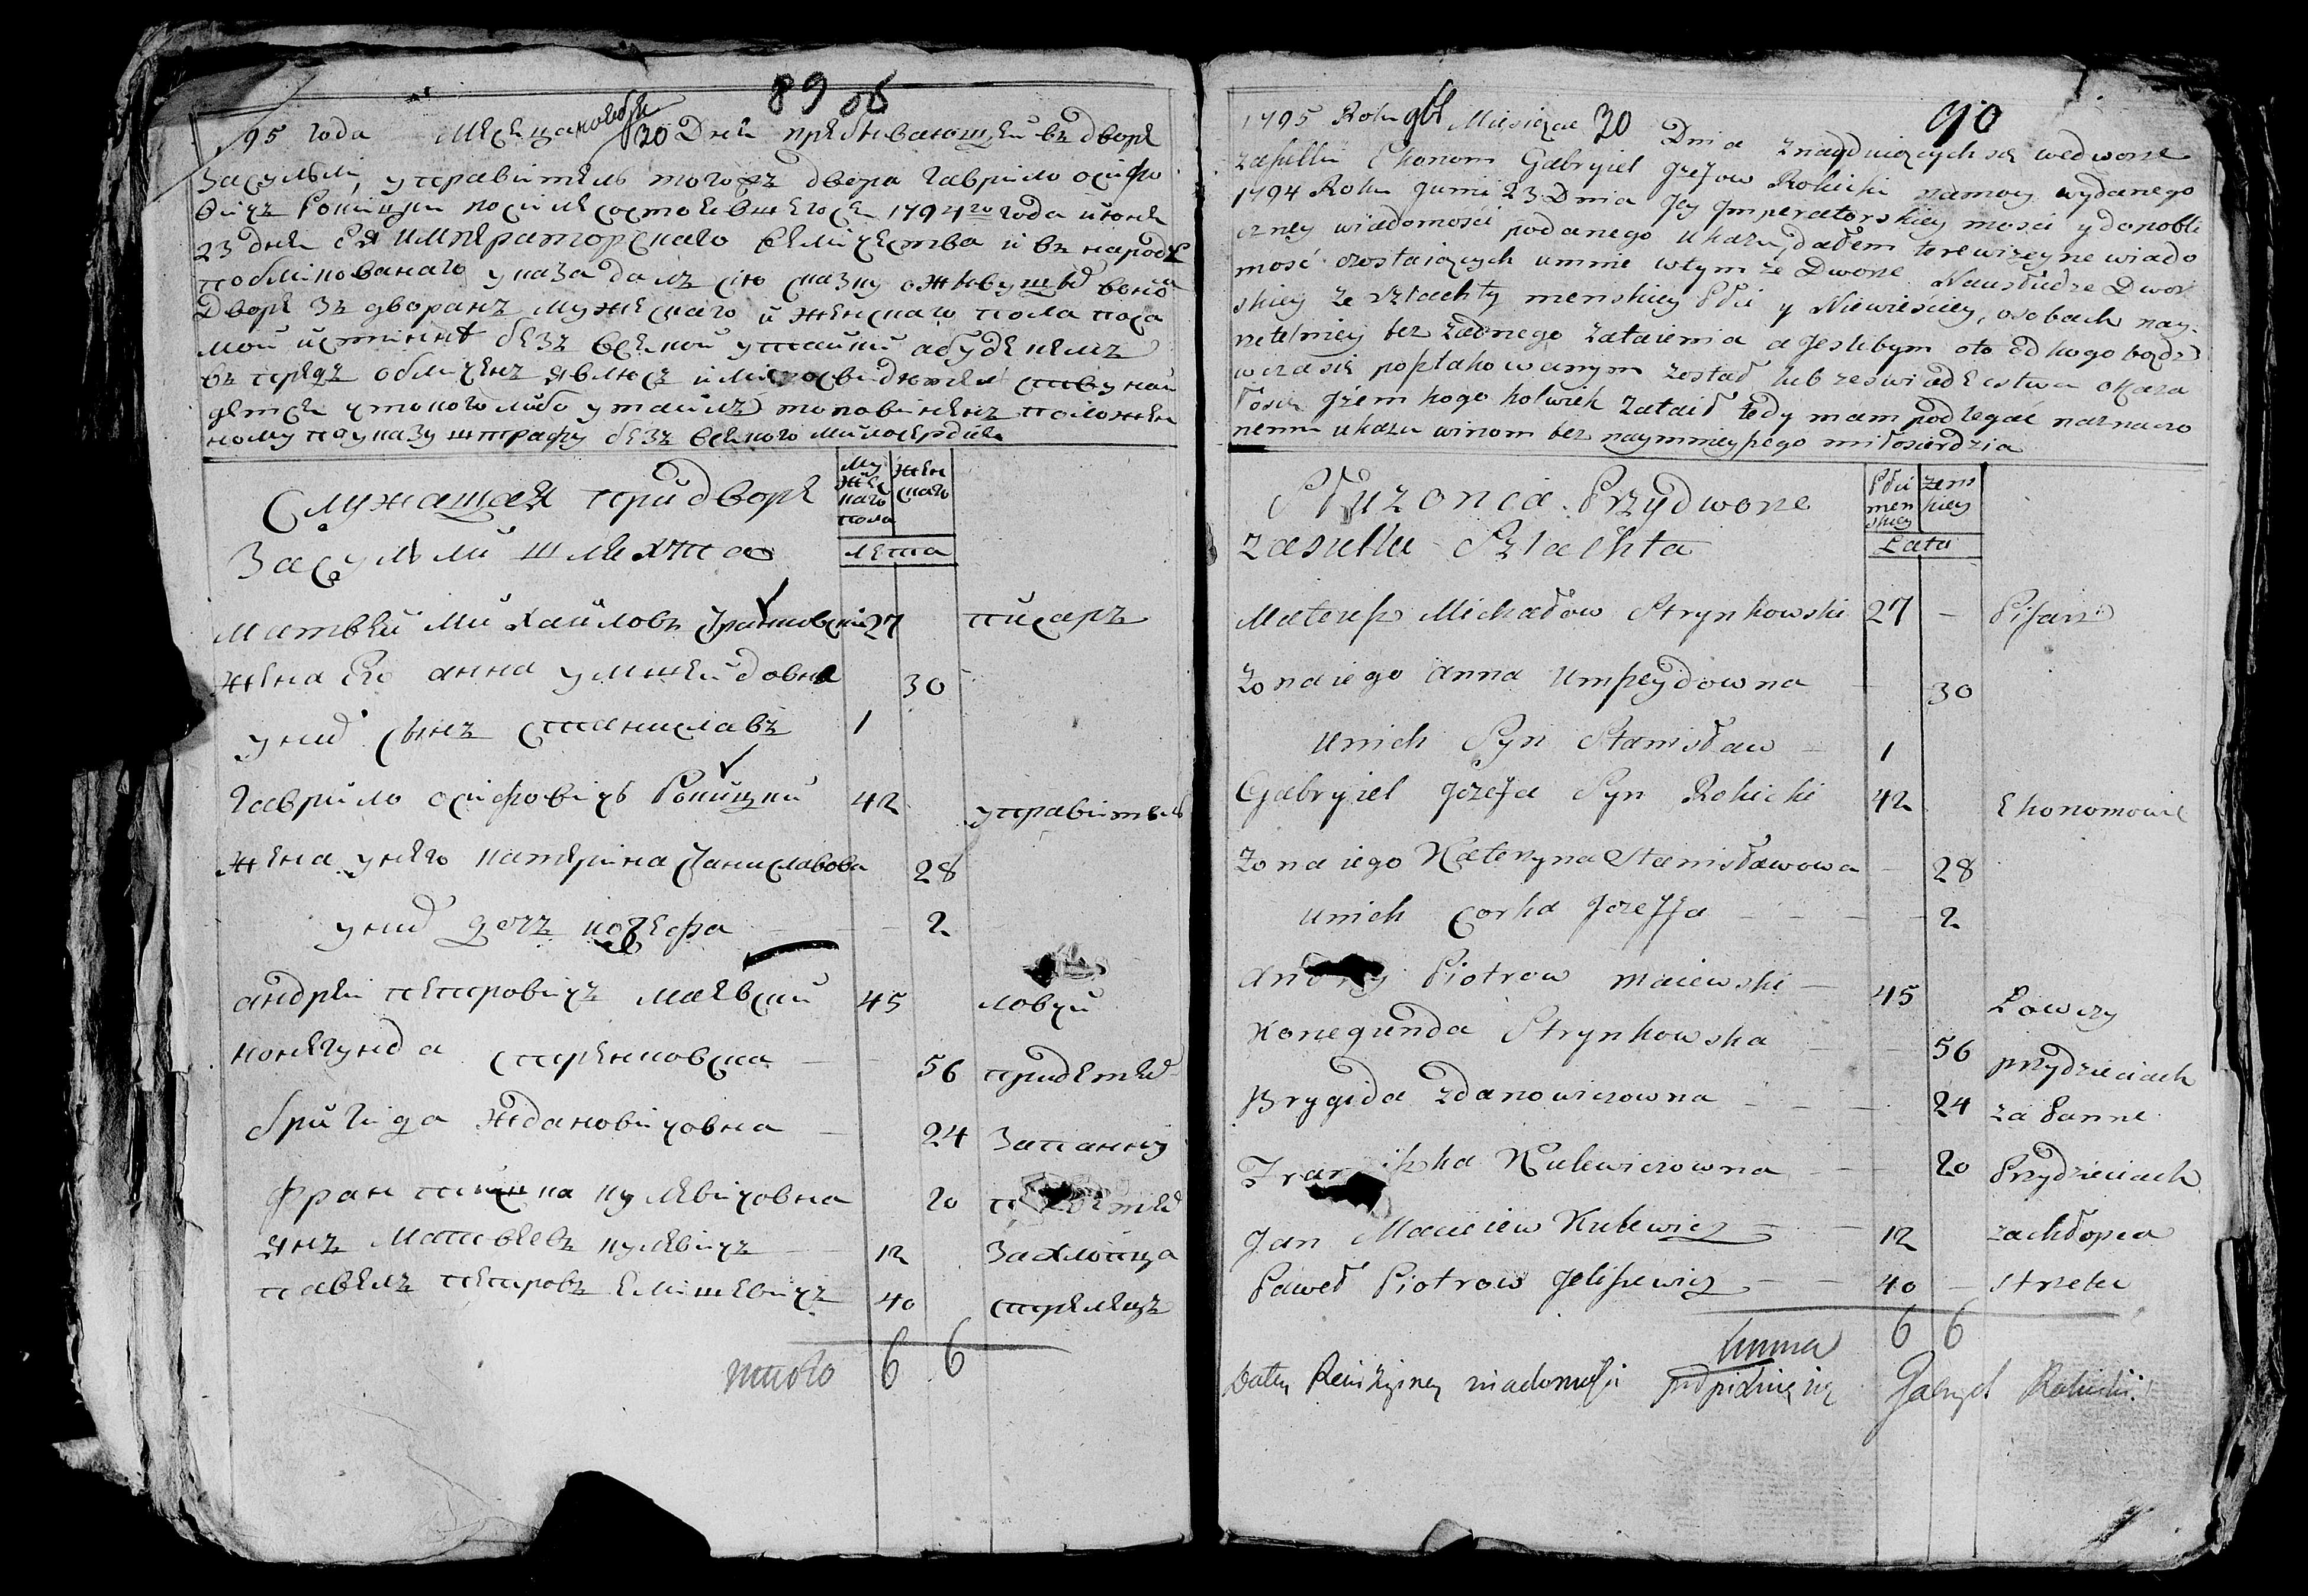 89 об
95 года Месяца ноября 30 Дня пребывающей въ дворе
Засульи, управитель тогожъ двора Гаврило осифо
вичъ Рокицки после состоявшегося 1794го года июня
23 дня Ея императорскаго величества и въ народъ
публикованаго указа далъ сию сказку о живущыхъ воно
Дворе зъ дворанъ мужескаго и женскаго пола поса
мой истинне безъ всякой утайки а буде кемъ
въ предъ обличенъ явлюсъ или по свидетел ству най
детси что кого либо утаилъ то повиненъ положен
ному по указу штрафу безъ всякого милосердия
Служащая при дворе
Засульи шляхта
Му жес каго пола
жен скаго
лета
матвей Михайловъ Стрынковски 27 писаръ
жена Его анна умшейдовна 30
у них сынъ станиславъ 1
Гаврило осифовичъ Рокицки 42 управитель
жена у него катерина Станиславова 28
у них дочъ иозефа 2
андрей петровичъ маевский 45 ловчи
конегунда стрынковска 56 при детях
бригида ждановичовна 24 за панну
францишка кулевичовна 20
янъ Матвеевъ кулевичъ 12 за хлопца
павелъ петровъ Елишевичъ 40 стрелецъ
итого 6 6
90
1795 Roku 9bl Miesiąca 30 Dnia znayduiących się wedworze
zasullu Ekonom Gabryiel Jozefow Rokicki namocy wydanego
1794 Roku Junii 23 Dnia Jey Jmperatorskiey mosci y do publi
czney wiadomości podanego ukazu, dałem te rewizeyne wiado
mość zostaiących umnie wtymże Dworze Nausłudze Dwor
skiey ze szlachty menskiey Płci y Niewieściey, osobach nay
rzetelniey bez żadnego zataienia a Jeslibym oto od kogo bądz
wczasie poszlakowanym został lub ze swiadectwa okaza
łosie Jżem kogo kolwiek zataił tedy mam podlegac naznaczo
nemu ukazu winom bez naymnieyszego miłosierdzia
Służonca Przydworze
zasullu Szlachta
Płci men skiey
żens kiey
Lata
Mateusz Michałow Strynkowski 27 – Pisarz
Zona iego anna Umszeydowna – 30
unich Syn Stanisław – 1
Gabryiel Jozefa Syn Rokicki 42 Ekonomowie
Zona iego Katerzyna Stanisławowa – 28
unich corka Jozeffa – 2
Andrzy Piotrow maiewski – 45 Łowczy
Konegunda Strynkowska – 56 przydzieciach
Brygida Zdanowiczowna – 24 za Panne
Franciszka Kulewiczowna – 20 Przydzieciach
Jan Macieiew Kulewicz – 12 zachłopca
Paweł Piotrow Jeliszewicz – 40 – Strzelec
Summa 6 6
Dałey Rewizyiney wiadomości podpisuię się Gabryel Rokicki.